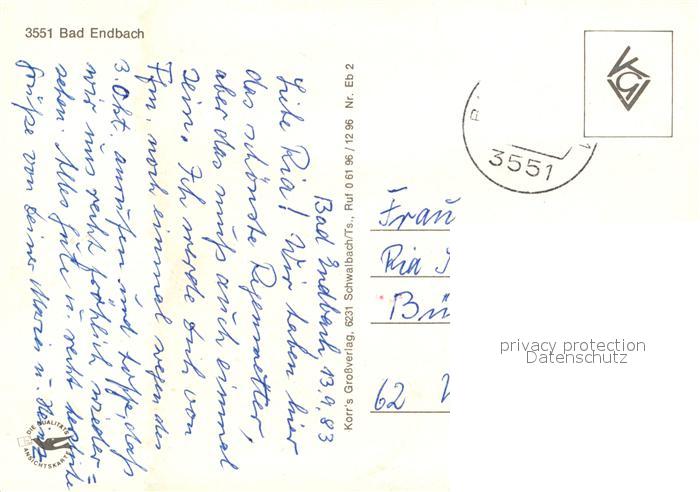 3551 Bad Endbach
Bad Endbach, 13.9.83
Liebe Ria! Wir haben hier
das schönste Regenwetter,
aber das muß auch einmal
sein. Ich werde Euch von
Ffm. noch einmal wegen des
3. Okt. anrufen und hoffe, daß
wir uns recht fröhlich wieder=
sehen. Alles Gute u. recht herzliche
Grüße von Deiner Maria u. Heinz
Korr's Großverlag, 6231 Schwalbach/Ts., Ruf 0 61 96 / 12 96 Nr. Eb 2
DIE QUALITÄTS
ANSICHTSKARTE
KGV
3551
Frau
Ria
Bü
62
privacy protection
Datenschutz